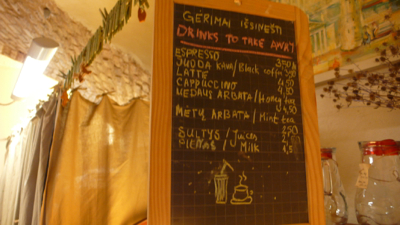 GĖRIMAI IŠSINEŠTI
DRINKS TO TAKE AWAY
ESPRESSO 3,50
JUODA KAVA/Black coffee 3,50
LATTE 4,50
CAPPUCCINO 4,50
MEDAUS ARBATA/Honey tea 4,50
MĖTŲ ARBATA/Mint tea
SULTYS/Juices
PIENAS/Milk